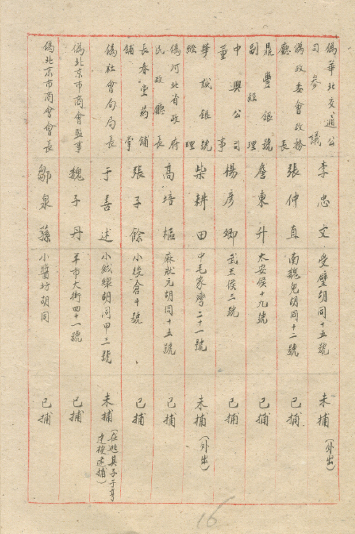 偽華北交通公司參議 李忠文 受壁胡同十五號 未捕(外出)
偽政委會政務廳長 張仲直 南魏兒胡同十二號 已捕
晨豐銀號副經理 詹東升 大安侯十九號 已捕
中興公司董事 楊彥卿 武王侯二號 已捕
華誠銀號經理 柴耕田 中毛家灣二十一號 未捕(外出)
偽河北省政府民政廳長 高培樞 麻狀元胡同十五號 已捕
長春堂藥舖舖掌 張子餘 小綏倉十號 已捕
偽社會局局長 于善述 小絨線胡同甲二號 未捕(在
偽北京市商會監事 魏子丹 羊市大街四十一號 已捕
偽北京市商會會長 鄒泉蓀 小醬坊胡同 已捕
16